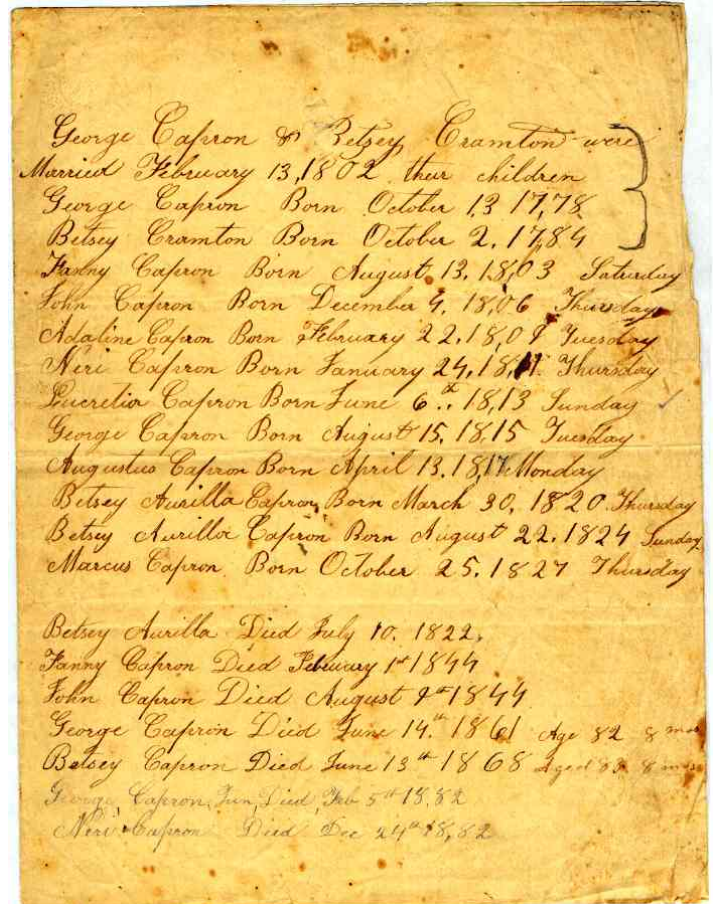 George Capron & Betsey Cramton were
Married February 13, 1802 their children
George Capron Born October 13 17,78
Betsey Cramton Born October 2. 17,84
Fanny Capron Born August 13. 18,03 Saturday
John Capron Born December 4. 18,06 Thursday
Adaline Capron Born February 22. 18,09 Tuesday
Neri Capron Born January 24. 18,11. Thursday
Lucretia Capron Born June 6th.. 18,13 Sunday
George Capron Born August 15. 18,15 Tuesday
Augustus Capron Born April 13. 18,17. Monday
Betsey Aurilla Capron, Born March 30, 1820 Thursday
Betsey Aurilla Capron Born August 22. 1824 Sunday
Marcus Capron Born October 25. 1827 Thursday
Betsey Aurilla Died July 10. 1822.
Fanny Capron Died February 1st 1844
John Capron Died August 9th 1844
George Capron Died June 14th. 1861 Age 82 8 mos
Betsey Capron Died June 13th 1868 Aged 83 8 mos
George Capron, Jun, Died, Feb 5th 18,82
Neri Capron Died Dec 24th 18,82